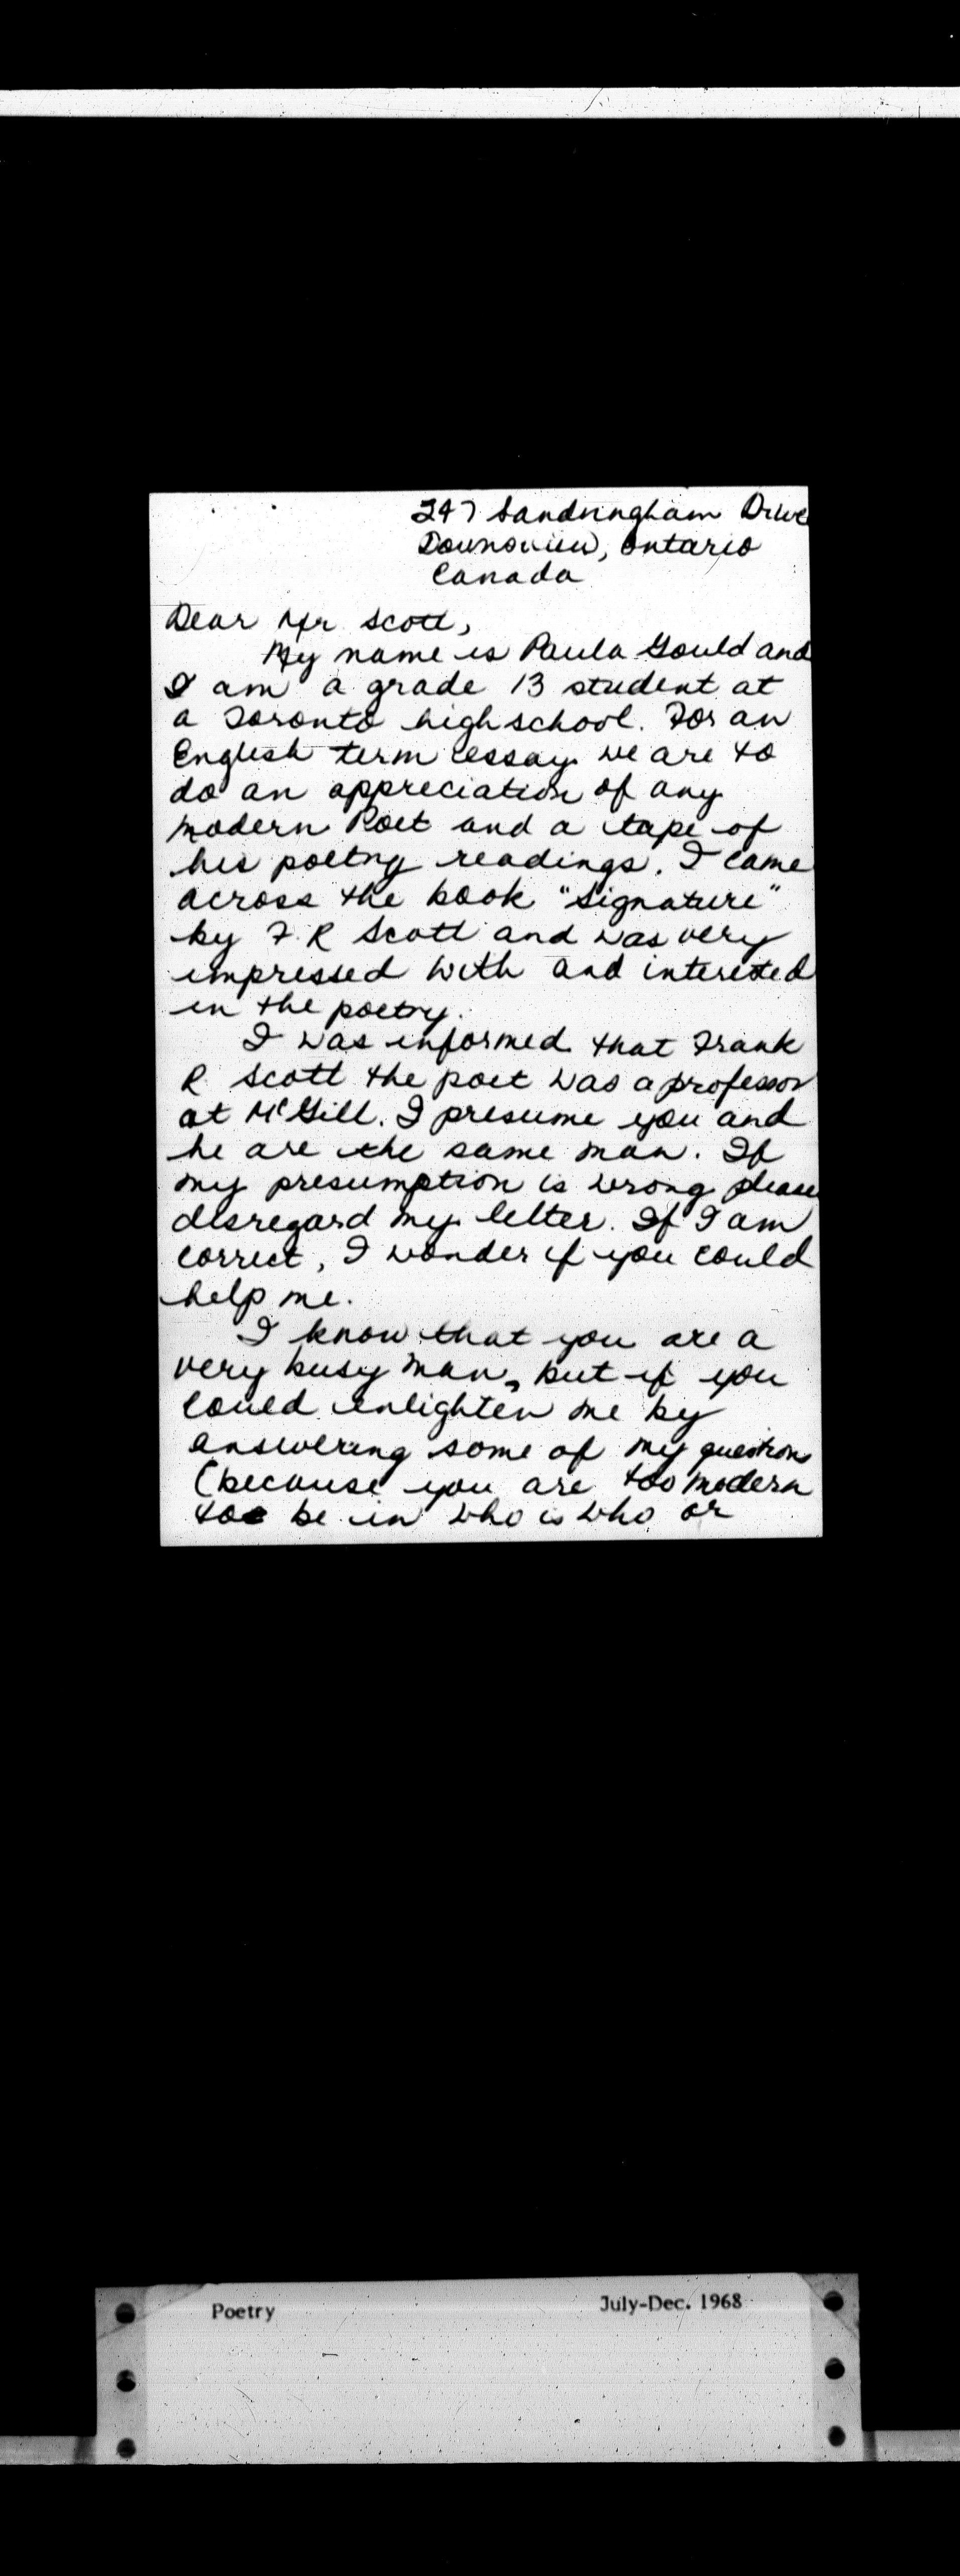 247 Sandringham Drive
Downsview, Ontario
Canada
Dear Mr Scott,
My name is Paula Gould and
I am a grade 13 student at
a Toronto highschool. For an
English term essay we are to
do an appreciation of any
modern Poet and a tape of
his poetry readings. I came
across the book "Signature"
by F. R Scott and was very
impressed with and intereted
in the poetry.
I was informed that Frank
R Scott the poet was a professor
at McGill. I presume you and
he are the same man. If
my presumption is wrong please
disregard my letter. If I am
correct, I wonder if you could
help me.
I know that you are a
very busy man, but if you
could enlighten me by
answering some of my questions
(because you are too modern
to be in who is who or
Poetry July-Dec. 1968